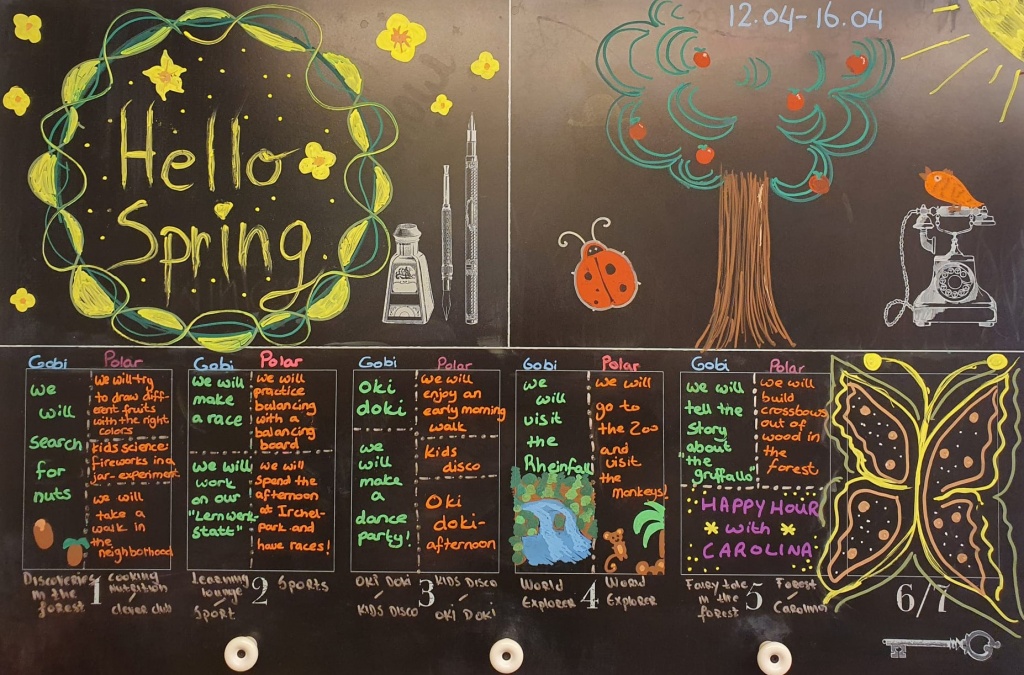 Hello
Spring
12.04-16.04
Gobi
we
will
search
for
nuts
Polar
we will try
to draw diff-
erent fruits
with the right
colors
kids science:
fireworks in a
jar-experiment
we will
take a
walk in
the
neighborhood
Discoveries
in the
forest
1
cooking
Nutrition
clever club
Gobi
we will
make
a race
we will
work
on our
"Lernwerk-
statt"
Polar
we will
practice
balancing
with a
balancing
board
we will
spend the
afternoon
at Irchel-
park and
have races!
Learning
lounge
Sport
2
Sports
Gobi
Oki
doki
we
will
make
a
dance
party!
Polar
we will
enjoy an
early morning
walk
Kids
disco
Oki
doki-
afternoon
Oki Doki
Kids Disco
3
Kids Disco
Oki Doki
Gobi
we
will
visit
the
Rheinfall
Polar
we will
go to
the Zoo
and
visit
the
monkeys!
World
Explorer
4
World
Explorer
Gobi
we will
tell the
story
about
"the
gruffallo"
Polar
we will
build
crossbows
out of
wood in
the
forest
HAPPY HOUR
with
CAROLINA
Fairy tale
in the
forest
5
Forest
Carolina
6/7